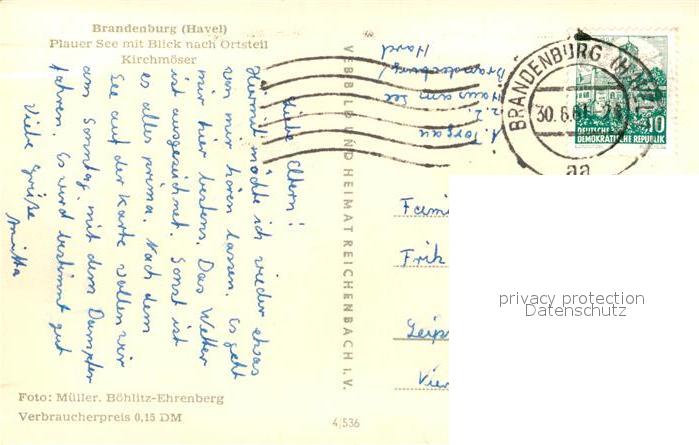 Brandenburg (Havel)
Plauer See mit Blick nach Ortsteil
Kirchmöser
Liebe Eltern!
Hiermit möchte ich wieder etwas
von mir hören lassen. Es geht
mir hier bestens. Das Wetter
ist ausgezeichnet. Sonst ist
es alles prima. Nach dem
See auf der Karte wollen wir
am Sonntag mit dem Dampfer
fahren. Es wird bestimmt gut
Viele Grüße
Foto: Müller, Böhlitz-Ehrenberg
Verbraucherpreis 0,15 DM
VEB BILD UND HEIMAT REICHENBACH I. V.
4/536
Torgau
z. Z.
Haus am See
Brandenburg/
Havel
BRANDENBURG (HAVEL)
30.8.61
aa
10
DEUTSCHE
DEMOKRATISCHE REPUBLIK
Fami
Frik
Leip
Vier
privacy protection
Datenschutz